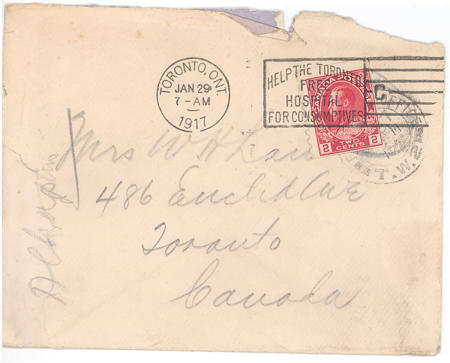 TORONTO, ONT.
JAN 29
7-AM
1917
HELP THE TORONTO
FREE
HOSPITAL
FOR CONSUMPTIVES
2 TWO CENTS 2
Mrs W H
486 Euclid Ave
Toronto
Canada